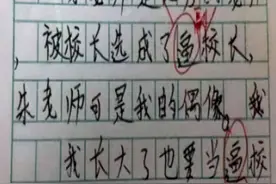 ，被校长选成了逼校长，
朱老师可是我的偶像。我
我长大了也要当逼校